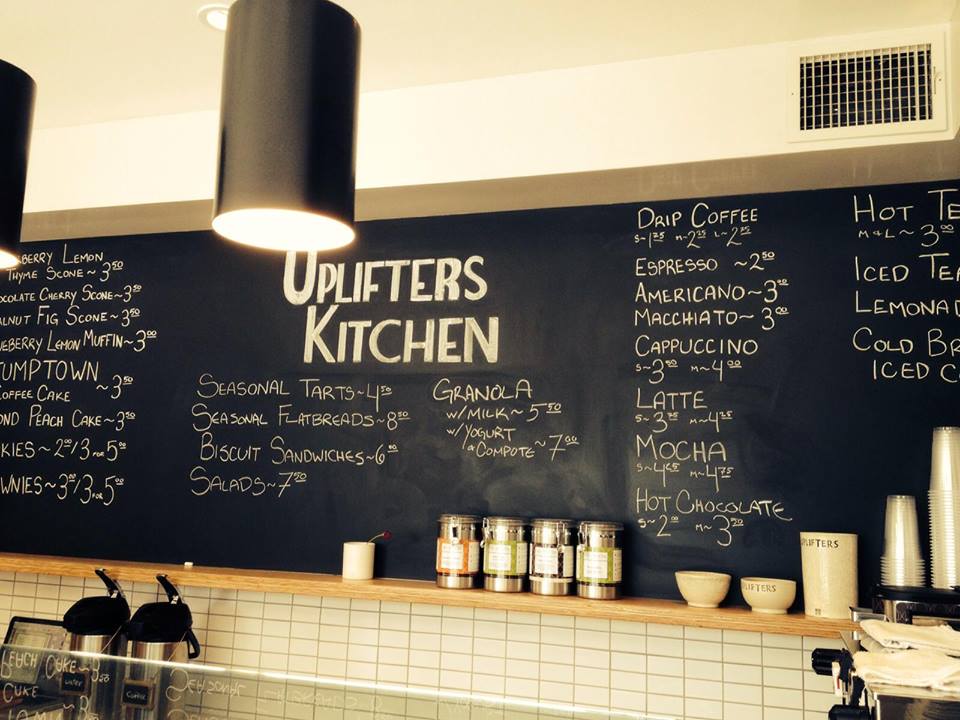 LEMON
THYME SCONE~3⁵⁰
CHERRY SCONE~3⁵⁰
FIG SCONE~3⁵⁰
LEMON MUFFIN~3⁰⁰
COFFEE CAKE ~3⁵⁰
PEACH CAKE~3⁵⁰
~2⁰⁰/3 FOR 5⁰⁰
~3⁰⁰/3 FOR 5⁰⁰
UPLIFTERS
KITCHEN
SEASONAL TARTS~4⁵⁰
SEASONAL FLATBREADS~8⁵⁰
BISCUIT SANDWICHES~6⁵⁰
SALADS~7⁵⁰
GRANOLA
W/MILK~5⁵⁰
W/YOGURT
& COMPOTE~7⁰⁰
DRIP COFFEE
S~1⁷⁵ M~2²⁵ L~2⁷⁵
ESPRESSO ~2⁵⁰
AMERICANO~3⁰⁰
MACCHIATO~3⁰⁰
CAPPUCCINO
S~3⁵⁰ M~4⁰⁰
LATTE
S~3⁷⁵ M~4²⁵
MOCHA
S~4²⁵ M~4⁷⁵
HOT CHOCOLATE
S~2⁰⁰ M~3⁵⁰
HOT
M&L~3⁰⁰
ICED TEA
COLD
ICED
UPLIFTERS
UPLIFTERS
WATER
COFFEE
CAKE